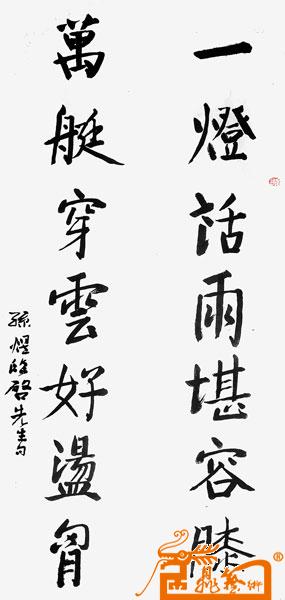 一燈話雨堪容膝
萬艇穿雲好盪胷
孫煜臨啓先生句
®